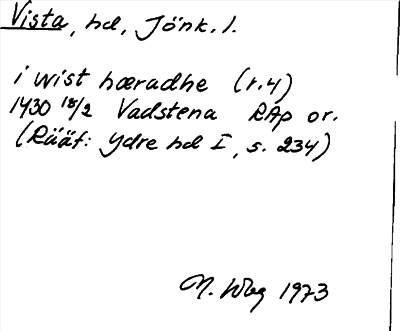 Vista, hd, Jönk. l.
i wist hæradhe (r. 4)
1430 18/2 Vadstena RAp or.
(Rääf: Ydre hd I, s. 234)
N. Wbg 1973